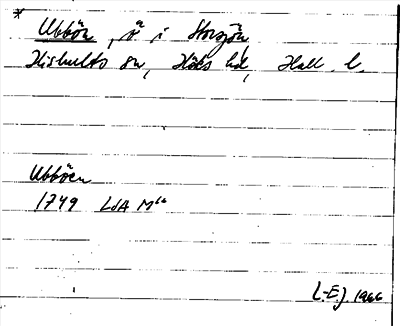 *
Ubbön, ö i Storsjön,
Hishults sn, Höks hd, Hall. l.
Ubböen
1749 LSA M66
L-EJ 1966